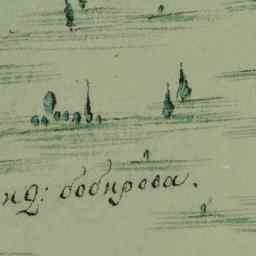 нд: бобирова.